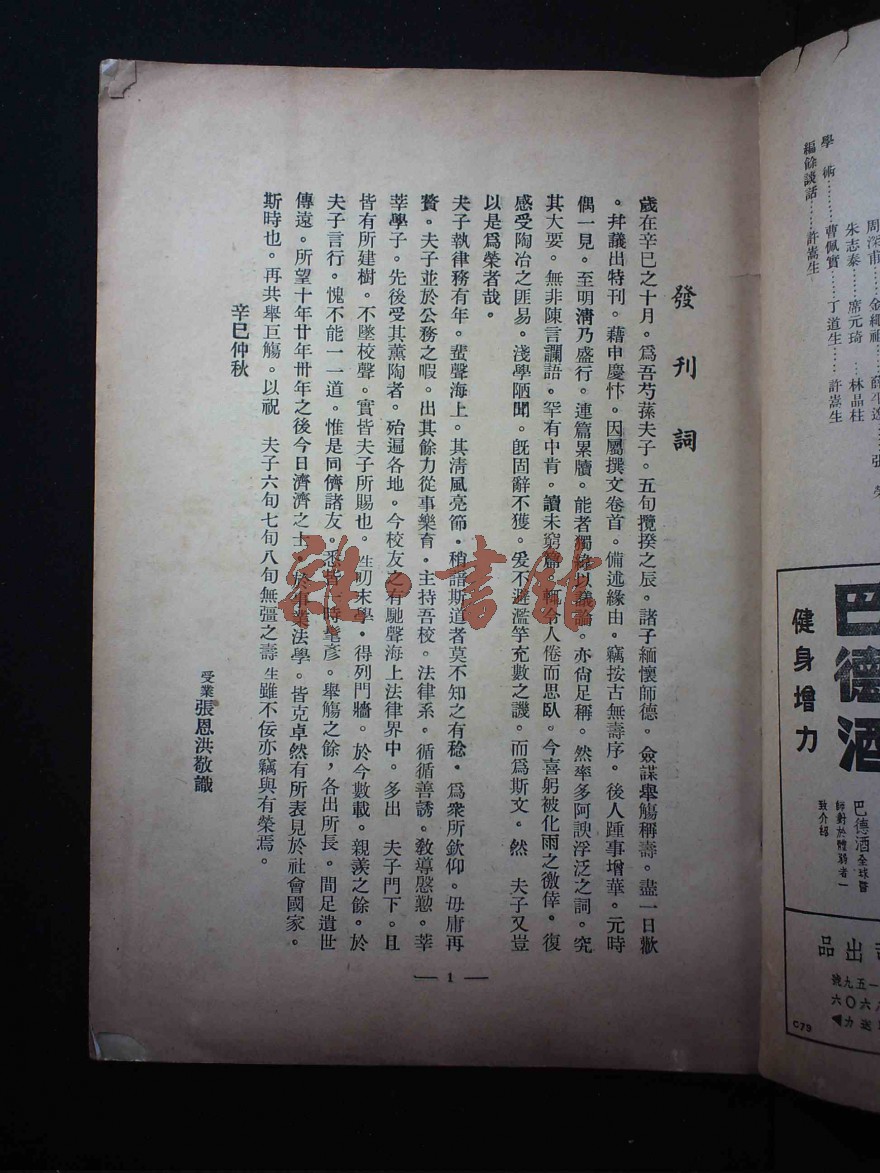 發刊詞
歲在辛巳之十月。爲吾芍蓀夫子。五旬攬揆之辰。諸子緬懷師德。僉謀舉觴稱壽。盡一日歡
。幷議出特刊。藉申慶忭。因屬撰文卷首。備述緣由。竊按古無壽序。後人踵事增華。元時
偶一見。至明淸乃盛行。連篇累牘。能者獨緣以議論。亦尙足稱。然率多阿諛浮泛之詞。究
其大要。無非陳言讕語。罕有中肯。讀未窮篇。輒令人倦而思臥。今喜躬被化雨之徼倖。復
感受陶冶之匪易。淺學陋聞。旣固辭不獲。爰不避濫竽充數之譏。而爲斯文。然 夫子又豈
以是爲榮者哉。
夫子執律務有年。蜚聲海上。其淸風亮節。稍諳斯道者莫不知之有稔。爲衆所欽仰。毋庸再
贅。夫子並於公務之暇。出其餘力從事樂育。主持吾校。法律系。循循善誘。敎導慇懃。莘
莘學子。先後受其薰陶者。殆遍各地。今校友之有馳聲海上法律界中。多出 夫子門下。且
皆有所建樹。不墜校聲。實皆夫子所賜也。生叨末學。得列門牆。於今數載。親羨之餘。於
夫子言行。愧不能一一道。惟是同儕諸友。悉皆一時髦彥。舉觴之餘，各出所長。間足遺世
傳遠。所望十年廿年卅年之後今日濟濟之士。於事業法學。皆克卓然有所表見於社會國家。
斯時也。再共舉巨觴。以祝 夫子六旬七旬八旬無彊之壽生雖不佞亦竊與有榮焉。
辛巳仲秋
受業張恩洪敬識
— 1 —
雜·書館
朱志泰……席元琦……林晶柱
學術………曹佩實……丁道生……許嵩生
編餘談話……許嵩生
巴德酒
健身增力
巴德酒全球醫
師對於體弱者一
致介紹
出品
一五九號
六〇六
C79